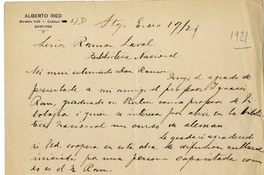 ALBERTO RIED
SANTIAGO
Stgo. Enero 19/21
1921
Señor Ramon Laval
Biblioteca Nacional
Mi muy estimado don Ramon:
Tengo el agrado de
presentarle a mi amigo el prof. Ignacio
Ram, graduado en Berlin como profesor de
y que se interesa por abrir en la Biblio
teca Nacional un curso de aleman.
Le quedaré agradecido
si Ud. coopera en esta obra de difusion cultural
iniciada por una persona capacitada como
es el Sr Ram.